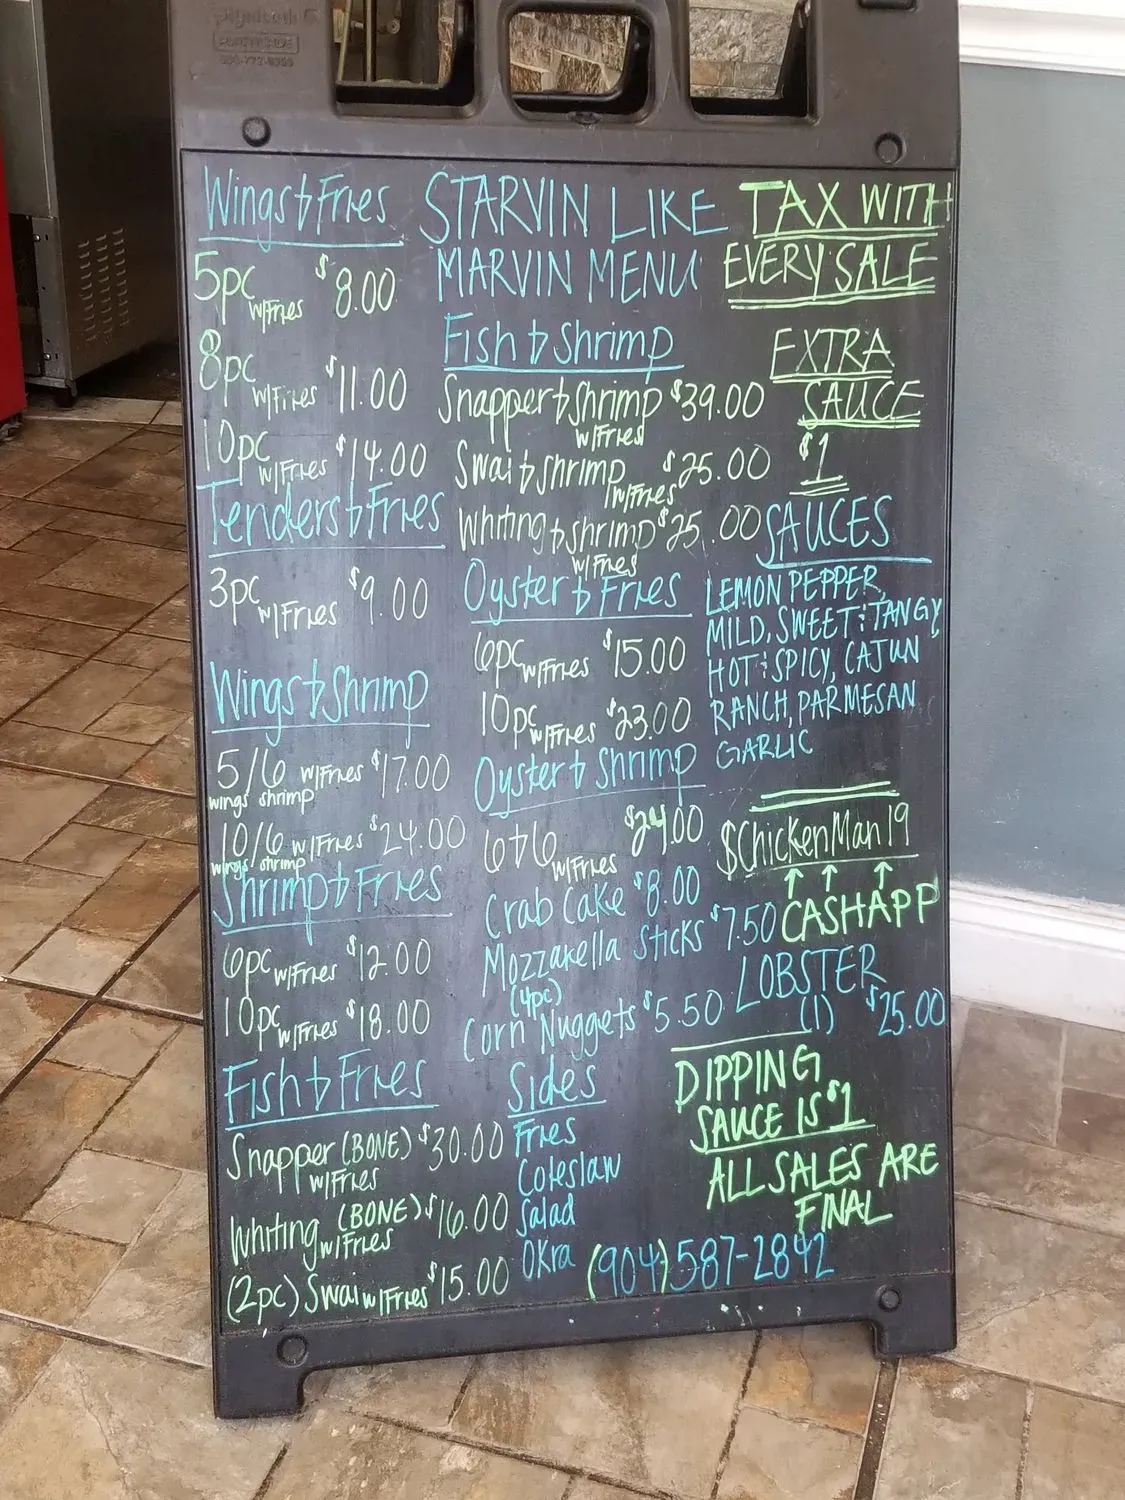 Wings & Fries
5pc w/Fries $8.00
8pc w/Fries $11.00
10pc w/Fries $14.00
Tenders & Fries
3pc w/Fries $9.00
Wings & Shrimp
5/6 w/Fries $17.00
wings shrimp
10/6 w/Fries $24.00
wings shrimp
Shrimp & Fries
6pc w/Fries $12.00
10pc w/Fries $18.00
Fish & Fries
Snapper (BONE) $30.00
w/Fries
Whiting (BONE) $16.00
w/Fries
(2pc) Swai w/Fries $15.00
STARVIN LIKE
MARVIN MENU
Fish & Shrimp
Snapper & Shrimp $39.00
w/Fries
Swai & Shrimp $25.00
w/Fries
Whiting & Shrimp $25.00
w/Fries
Oyster & Fries
6pc w/Fries $15.00
10pc w/Fries $23.00
Oyster & Shrimp
6 & 6 w/Fries $24.00
Crab Cake $8.00
Mozzarella Sticks $7.50
(4pc)
Corn Nuggets $5.50
Sides
Fries
Coleslaw
Salad
Okra
TAX WITH
EVERY SALE
EXTRA
SAUCE
$1
SAUCES
LEMON PEPPER,
MILD, SWEET & TANGY
HOT & SPICY, CAJUN
RANCH, PARMESAN
GARLIC
$ChickenMan19
CASHAPP
LOBSTER
(1) $25.00
DIPPING
SAUCE IS $1
ALL SALES ARE
FINAL
(904) 587-2842